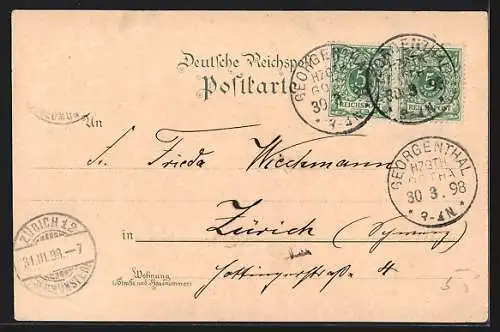 Deutsche Reichspost
Postkarte
GEORGENTHAL
HZGTH.
GOTHA
30
3-4N
5
5
REICHSPOST
An
Frieda Wiechmann
GEORGENTHAL
HZGTH.
GOTHA
30 3. 98
3-4N
in Zürich (Schweiz)
ZÜRICH 12
31.III.98.-7
in
Wohnung
(Straße und Hausnummer)
Hottingerstraße 4
5